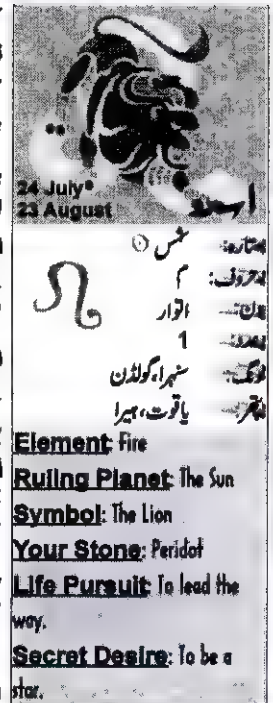 24 July
23 August
اسد
ستارہ: شمس
حروف: م
دن: اتوار
عدد: 1
رنگ: سنہرا، گولڈن
پتھر: یاقوت، ہیرا
Element: Fire
Ruling Planet: The Sun
Symbol: The Lion
Your Stone: Peridot
Life Pursuit: To lead the
way.
Secret Desire: To be a
star.